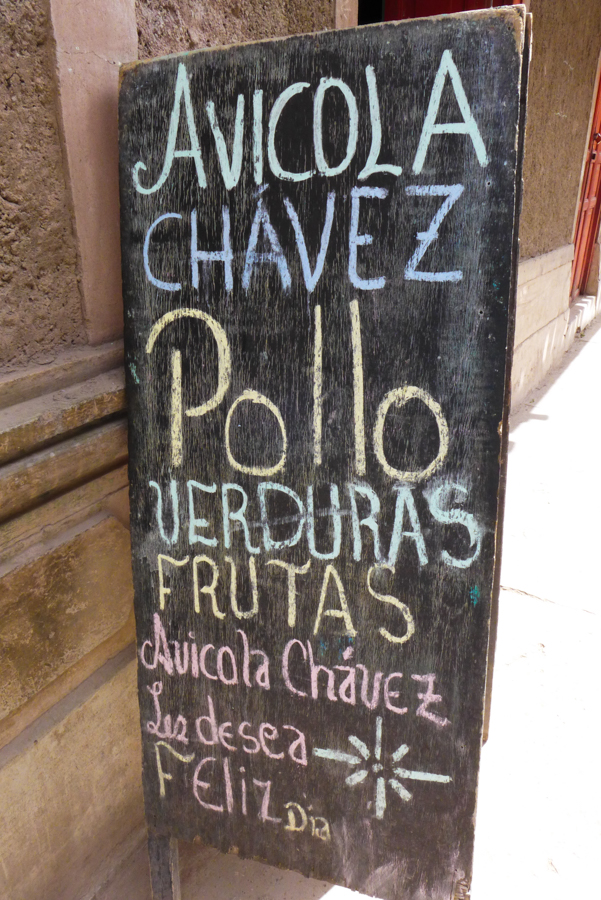 AVICOLA
CHÁVEZ
Pollo
VERDURAS
FRUTAS
Avicola Chávez
Les desea
F Feliz Dia